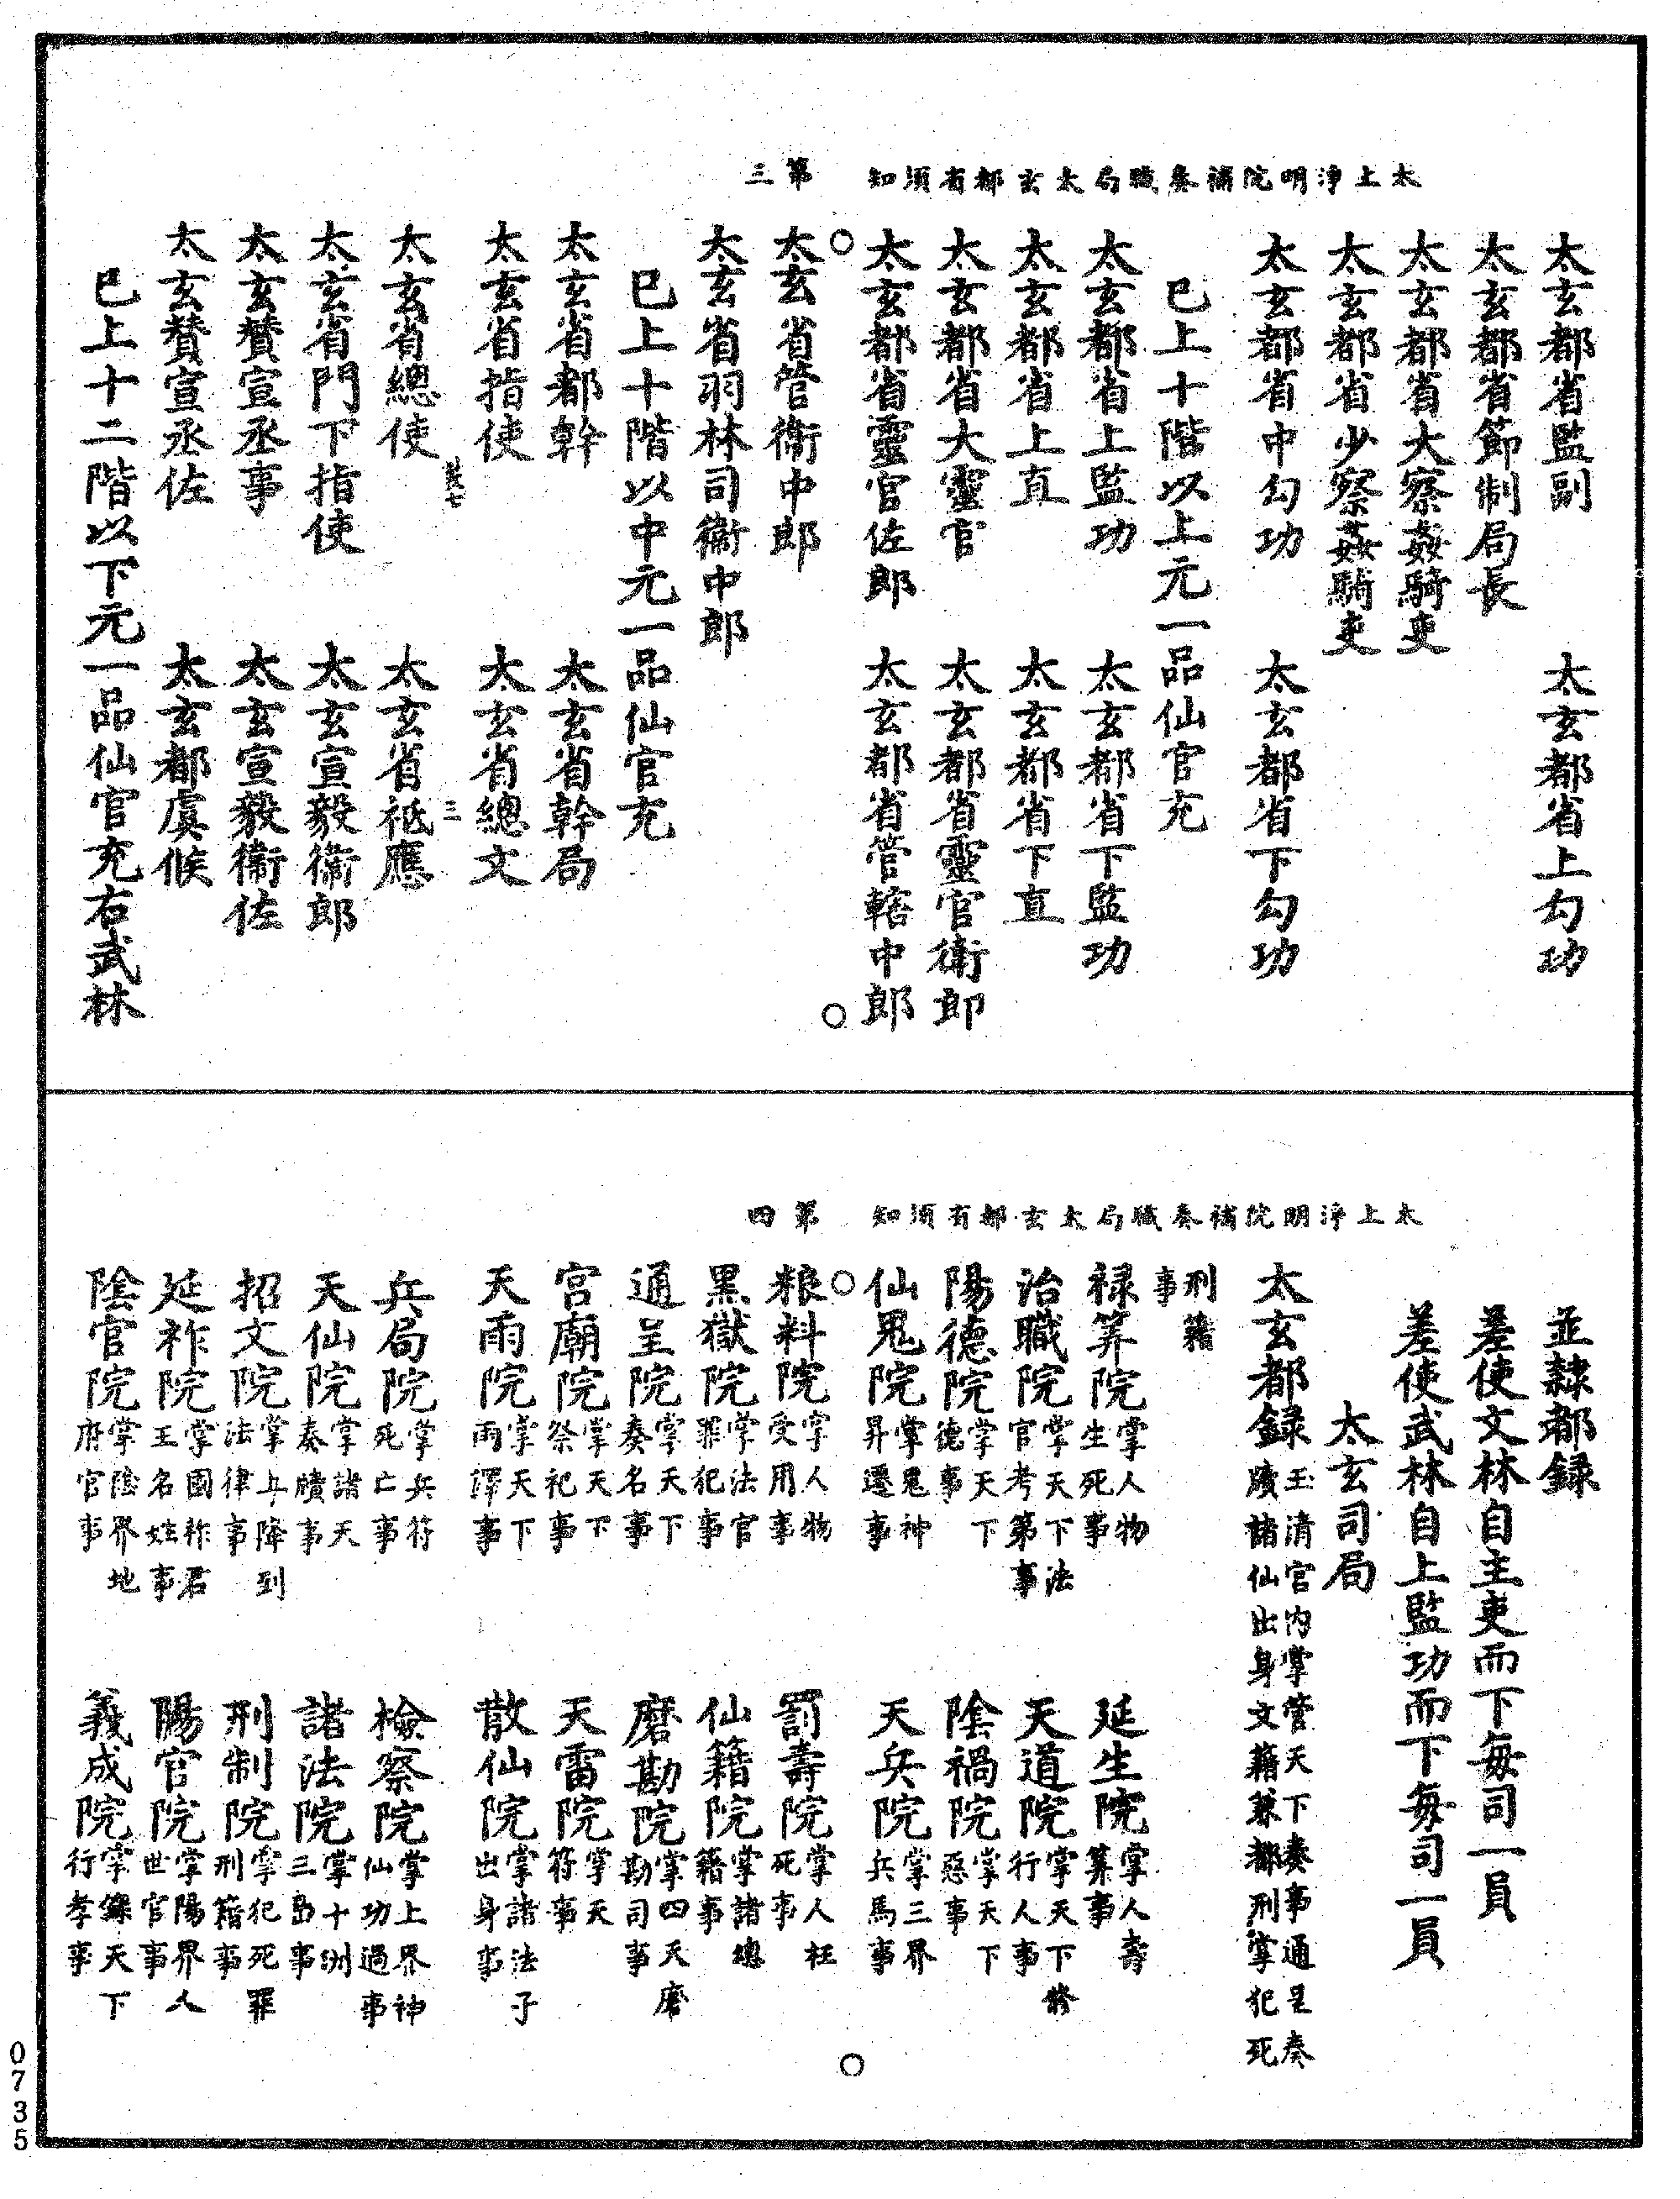 太上淨明院補奏職局太玄都省須知　第三
太玄都省監副　太玄都省上勾功
太玄都省節制局長
太玄都省大察姦騎吏
太玄都省少察姦騎吏
太玄都省中勾功　太玄都省下勾功
已上十階以上元一品仙官充
太玄都省上監功　太玄都省下監功
太玄都省上直　太玄都省下直
太玄都省大靈官　太玄都省靈官衛郎
太玄都省靈官佐郎　太玄都省管轄中郎
太玄省管衛中郎
太玄省羽林司衛中郎
已上十階以中元一品仙官充
太玄省都幹　太玄省幹局
太玄省指使　太玄省總文
三
太玄省總使　太玄省祗應
太玄省門下指使　太玄宣毅衛郎
太玄贊宣丞事　太玄宣毅衛佐
太玄贊宣丞佐　太玄都虞候
已上十二階以下元一品仙官充右武林
太上淨明院補奏職局太玄都省須知　第四
並隸都録
差使文林自主吏而下每司一員
差使武林自上監功而下每司一員
太玄司局
太玄都録玉清官内掌管天下奏事通呈奏牘諸仙出身文籍兼都刑掌犯死
刑籍事
禄筭院掌人物生死事　延生院掌人壽筭事
治職院掌天下法官考第事　天道院掌天下修行人事
陽德院掌天下德事　陰禍院掌天下惡事
仙鬼院掌鬼神昇遷事　天兵院掌三界兵馬事
粮料院掌人物受用事　罰壽院掌人枉死事
黑獄院掌法官罪犯事　仙籍院掌諸總籍事
通呈院掌天下奏名事　磨勘院掌四天磨勘司事
宮廟院掌天下祭祀事　天雷院掌天符事
天雨院掌天下雨澤事　散仙院掌諸法子出身事
兵局院掌兵符死亡事　檢察院掌上界神仙功過事
天仙院掌諸天奏牘事　諸法院掌十洲三島事
招文院掌斗降到法律事　刑制院掌犯死罪刑籍事
延祚院掌國祚君王名姓事　陽官院掌陽界人世官事
陰官院掌陰界地府官事　義成院掌錄天下行孝事
0735